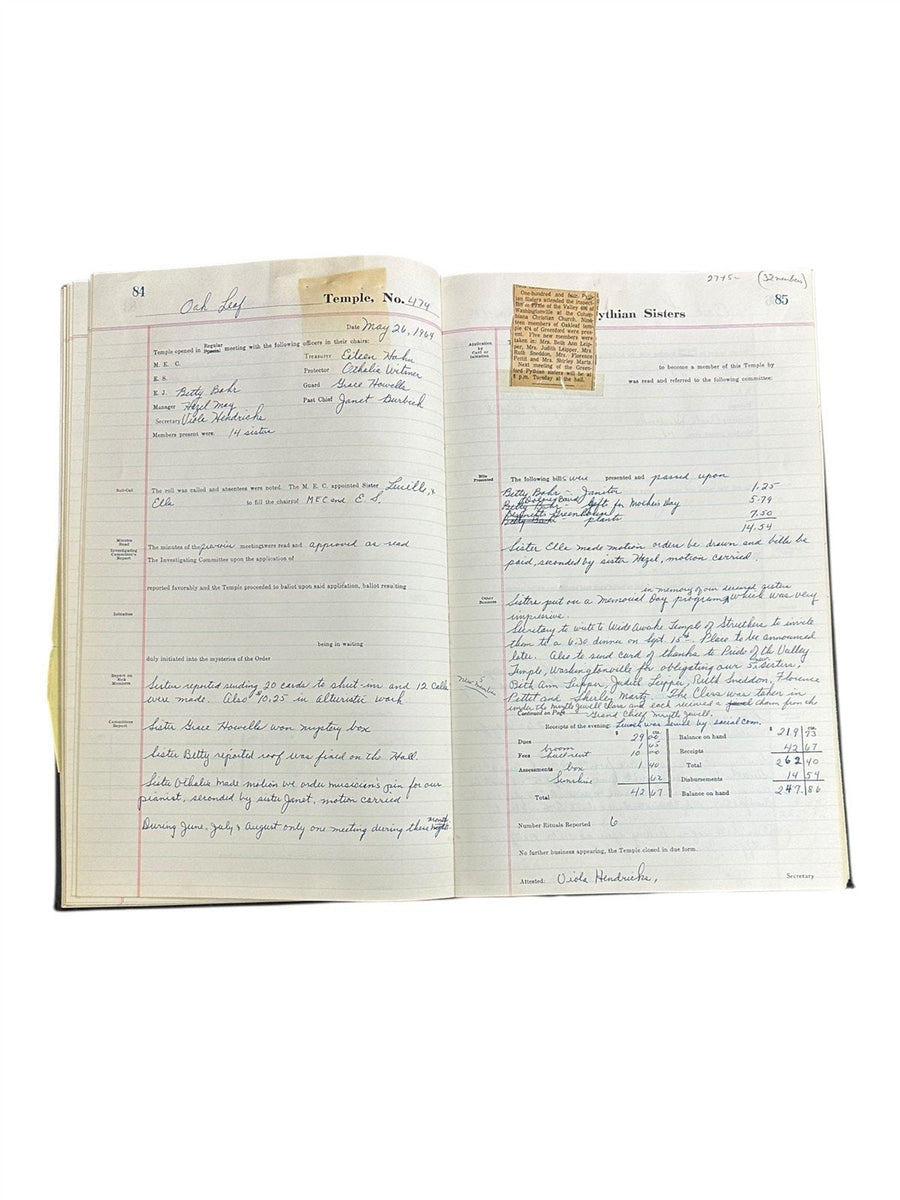 84
Oak Leaf Temple, No. 474
Date May 26, 1964
Temple opened in Regular Special meeting with the following officers in their chairs:
M. E. C.
Treasurer Eileen Hahn
E. S.
Protector Othalia Witmer
E. J. Betty Bahr
Guard Grace Howells
Manager Hazel May
Past Chief Janet Burbick
Secretary Viola Hendricks
Members present were 14 sisters
Roll-Call
The roll was called and absentees were noted. The M. E. C. appointed Sister Lucille, &
Ella to fill the chair of MEC and E. S.
Minutes Read
The minutes of the previous meeting were read and approved as read
Investigating Committee's Report
The Investigating Committee upon the application of
reported favorably and the Temple proceeded to ballot upon said application, ballot resulting
Initiation
being in waiting
duly initiated into the mysteries of the Order
Report on Sick Members
Sisters reported sending 20 cards to shut-ins and 12 calls
were made. Also $10.25 in alturistic work
Committees Report
Sister Grace Howells won mystery box
Sister Betty reported roof was fixed on the Hall.
Sister Othalia made motion we order musician's pin for our
pianist, seconded by sister Janet, motion carried
During June, July & August only one meeting during these months.
(32 members)
85
Pythian Sisters
One-hundred and four Pyth-
ian Sisters attended the inspec-
tion of Pride of the Valley
Washingtonville at the Colum-
biana Christian Church. Nine-
teen members of Oakleaf tem-
ple 474 of Greenford were pres-
ent. Five new members were
taken in: Mrs. Beth Ann Leip-
per, Mrs. Judith Leipper, Mrs.
Ruth Sneddon, Mrs. Florence
Pettit and Mrs. Shirley Martz.
Next meeting of the Green-
ford Pythian sisters will be at
8 p.m. Tuesday at the hall.
Application by Card or Initiation
to become a member of this Temple by
was read and referred to the following committee:
Bills Presented
The following bills were presented and passed upon
Betty Bahr - Janitor 1.25
Betty Bahr - Gift for Mother's Day 5.79
Greenhouse plants 7.50
14.54
Sister Ella made motion orders be drawn and bills be
paid, seconded by sister Hazel, motion carried.
Other Business
in memory of our deceased sisters
Sisters put on a Memorial Day program, which was very
impressive.
Secretary to write to Wide Awake Temple of Struthers to invite
them to a 6:30 dinner on Sept. 15th. Place to be announced
later. Also to send card of thanks to Pride of the Valley
Temple, Washingtonville for obligating our 5 new sisters,
New 5 members
Beth Ann Leipper, Judith Leipper, Ruth Sneddon, Florence
Pettet and Sherley Martz. The Class was taken in
under the Myrth Jewell Class and each received a charm from the
Continued on Page
Grand Chief Myrth Jewell.
Receipts of the evening: Lunch was served by social com.
Dues 29 00
Balance on hand $ 219 73
broom 1 65
Fees hall rent 10 00
Receipts 42 67
Assessments box 1 40
Total 262 40
Sunshine 62
Disbursements 14 54
Total 42 67
Balance on hand 247.86
Number Rituals Reported 6
No further business appearing, the Temple closed in due form.
Attested: Viola Hendricks, Secretary